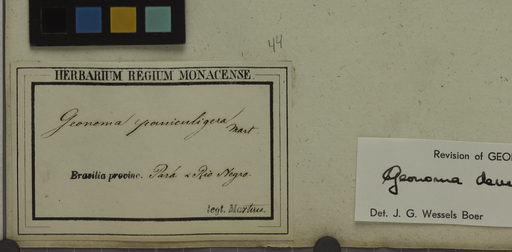 44
HERBARIUM REGIUM MONACENSE.
Geonoma paniculigera
Mart
Brasilia provinc. Pará & Rio Negro.
legt. Martius.
Revision of GEO
Geonoma deve
Det. J. G. Wessels Boer